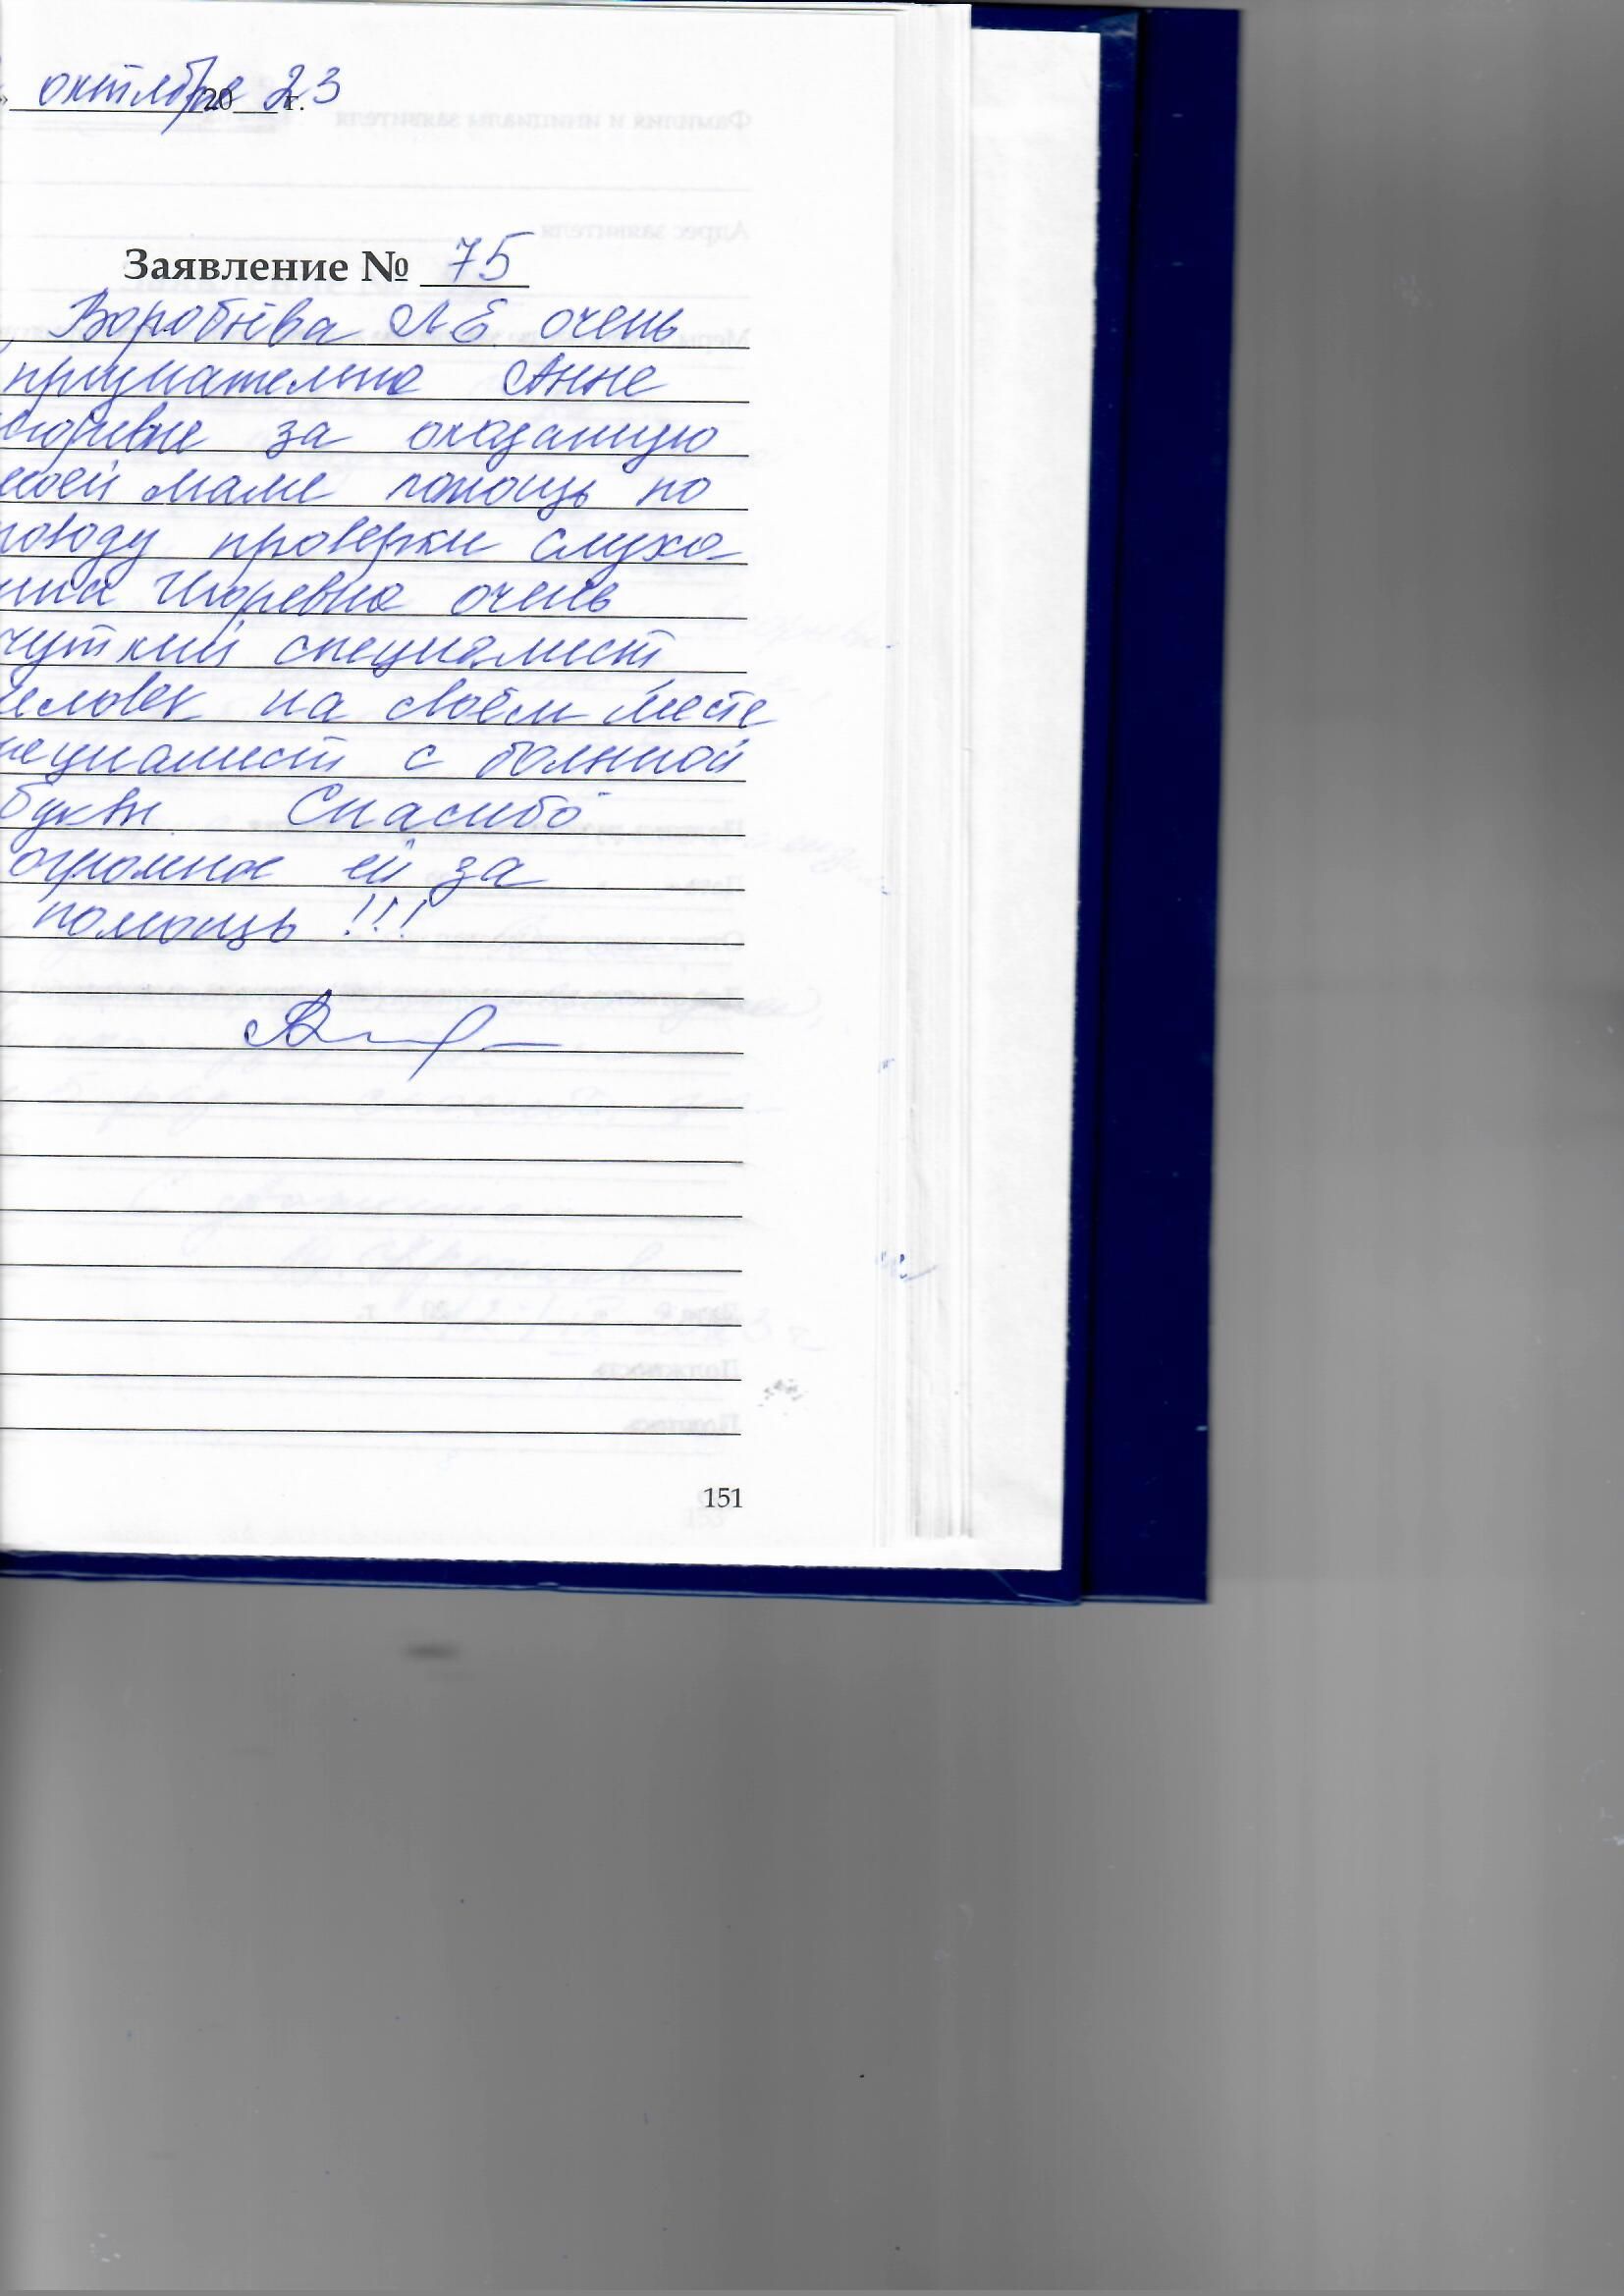 » октября 2023 г.
Заявление № 75
Воробьёва Л Е очень
признательна Анне
горевне за оказанную
моей маме помощь по
поводу проверки слуха
нна Игоревна очень
чуткий специалист
человек на своём месте
пециалист с большой
буквы. Спасибо
огромное ей за
помощь !!!
151